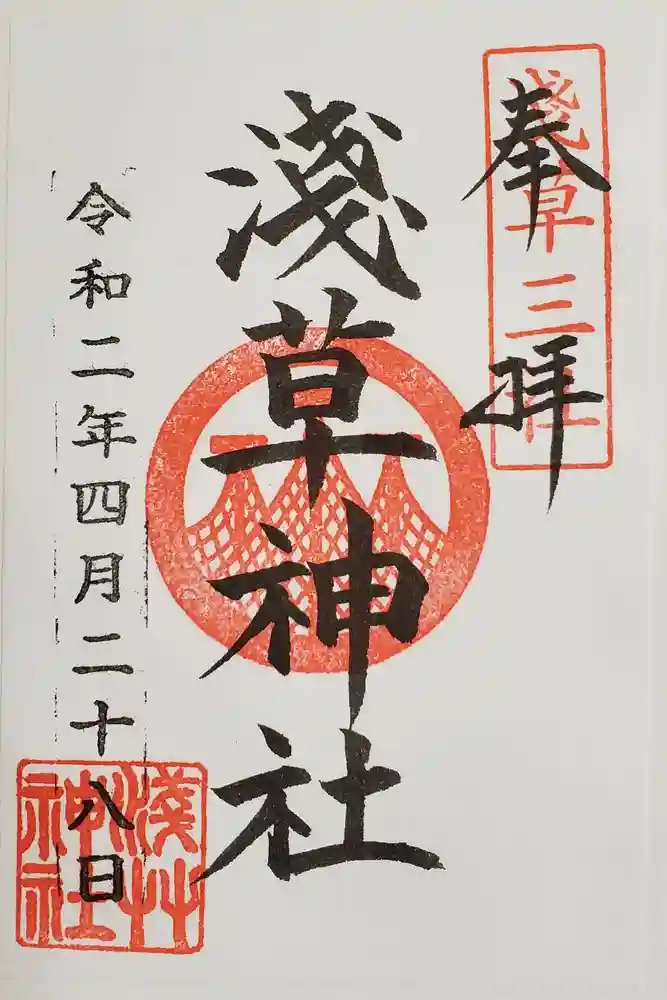 奉拝
淺草三社
淺草神社
令和二年四月二十八日
淺草神社